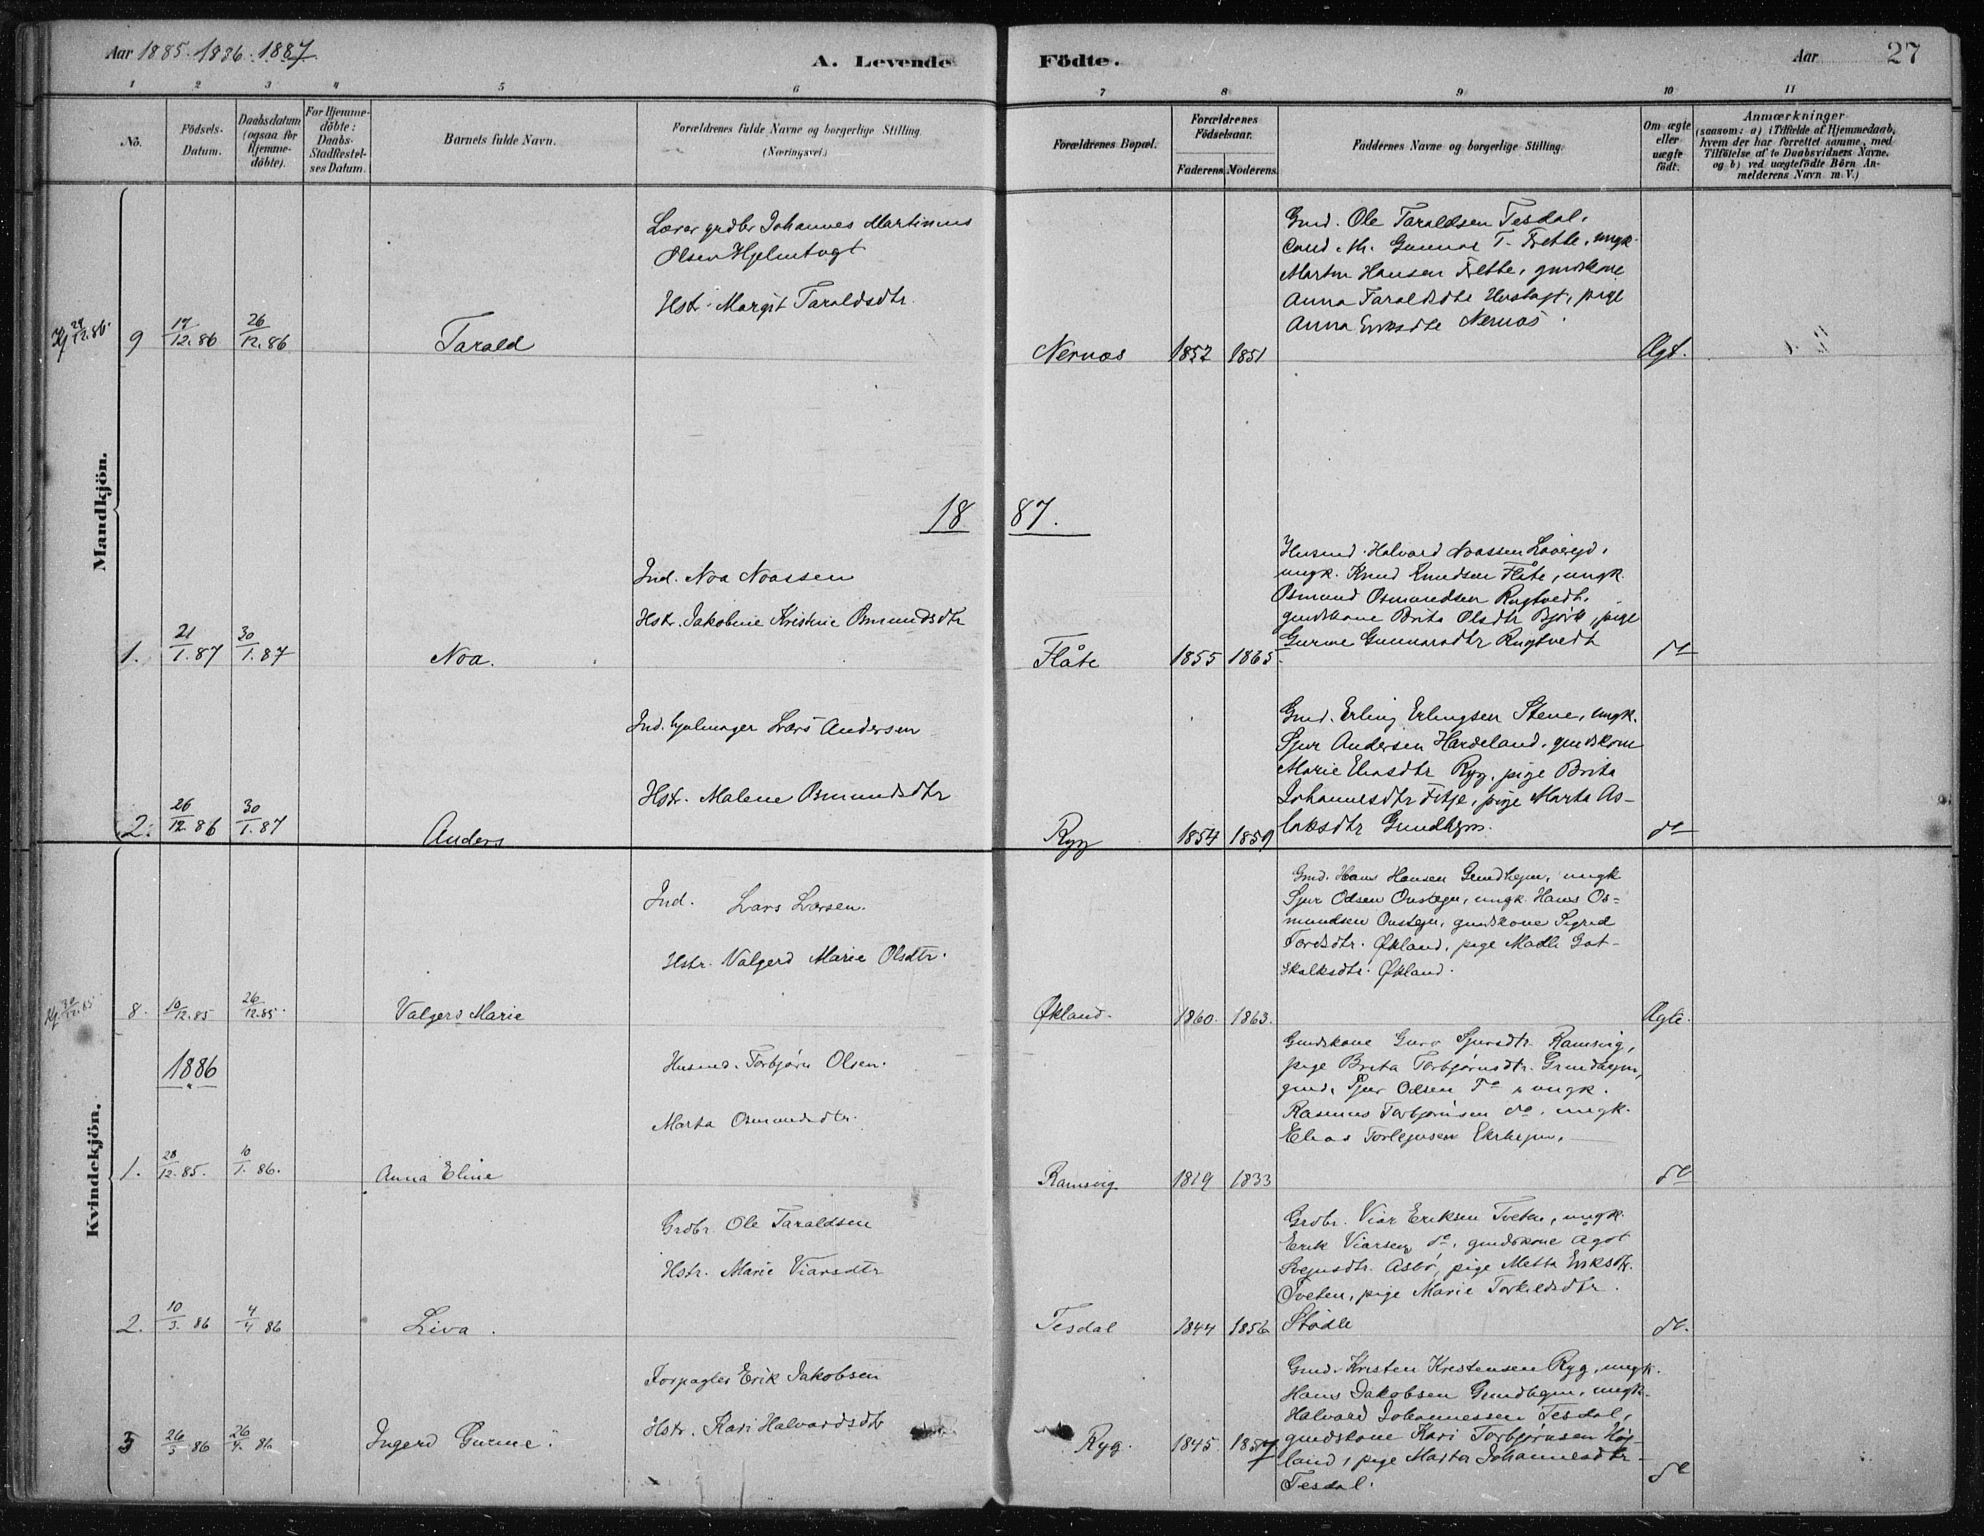 Aar 1885. 1886. 1887.
A. Levende
Födte.
Aar
27
1
2
3
4
5
6
7
8
9
10
11
No.
Födsels-
Datum.
Daabsdatum
(ogsaa for
Hjemme-
döbte).
For Hjemme-
döbte:
Daabs-
Stadfæstel-
ses Datum.
Barnets fulde Navn.
Forældrenes fulde Navne og borgerlige Stilling.
(Næringsvei.)
Forældrenes Bopæl.
Forældrenes
Födselsaar.
Faderens.
Moderens.
Faddernes Navne og borgerlige Stilling.
Om ægte
eller
uægte
födt.
Anmærkninger
(saasom: a) i Tilfælde af Hjemmedaab,
hvem der har forrettet samme, med
Tilföielse af to Daabsvidners Navne.
og b) ved uægtefödte Börn An-
melderens Navn m. V.)
Mandkjön.
9
17/12.86
26/12.86
Tarald
Lærer grdbr Johannes Martinius
Olsen
Hstr. Margit Taraldsdtr.
Nernæs
1852
1851
Gmd. Ole Taraldsen Tesdal,
cand. th. Gunnar T. Frette, ungk.
Martin Hansen Frette, gmdskone
Anna Taraldsdtr pige
Anna Eriksdtr Nernæs.
Ægt.
1887.
1.
21/1.87
30/1.87
Noa.
Ind. Noa Noassen
Hstr. Jakobine Kristine Osmundsdtr
Flåte
1855
1865.
Husmd. Halvard Noassen
ungk. Knud Knudsen Flåte, ungk.
Osmund Osmundsen Rugtvedt,
gmdskone Brita Olsdtr Bjørk, pige
Gurine Gunnarsdtr Rugtvedt
do
2.
26/12.86
30/1.87
Anders
Ind. Lars Andersen
Hstr. Malene Osmundsdtr
Ryg
1854
1859
Gmd. Erling Erlingsen Stene, ungk.
Sjur Andersen Hardeland, gmdskone
Marie Eliasdtr Ryg, pige Brita
Johannesdtr Fitje, pige Marta As-
laksdtr Gundhejm.
do
Kvindekjön.
8.
10/12.85
26/12.85.
Valgerd Marie
Ind. Lars Larsen.
Hstr. Valgerd Marie Olsdtr.
Økland.
1860.
1863.
Gmd. Hans Hansen Gundhejm, ungk
Sjur Odsen Onstejn, ungk. Hans Os-
mundsen Onstejn, gmdskone Sigrid
Tordsdtr. Økland, pige Madli Got-
skalksdtr. Økland.
Ægte.
1886
1.
28/12.85.
10/1.86.
Anna Eline
Husmd. Torbjørn Olsen.
Marta Osmundsdtr.
Ramsvig
1819
1833
Gmdskone Guro Sjursdtr. Ramsvig,
pige Brita Torbjørnsdtr. Grindhejm,
gmd. Sjur Odsen do, ungk.
Rasmus Torbjørnsen do, ungk.
Elias Torlejvsen
do
2.
10/3.86
4/4 86
Liva.
Grdbr. Ole Taraldsen
Hstr. Marie Viarsdtr
Tesdal
1844
1856
Grdbr. Viar Eriksen Tveten, ungk.
Erik Viarsen do, gmdskone Agot
Svejnsdtr. Asbø, pige Metta Eriksdtr.
Tveten, pige Marie Torkildsdtr.
Stødle
do.
3
26/3 86
26/4.86
Ingerd Gurine.
Forpagter Erik Jakobsen
Hstr. Kari Halvardsdtr
Ryg.
1845.
1857
Gmd. Kristen Kristensen Ryg, ungk.
Hans Jakobsen Gundhejm, ungk.
Halvard Johannessen Tesdal,
gmdskone Kari Torbjørnsen Høj-
land, pige Marta Johannesdtr
Tesdal.
do